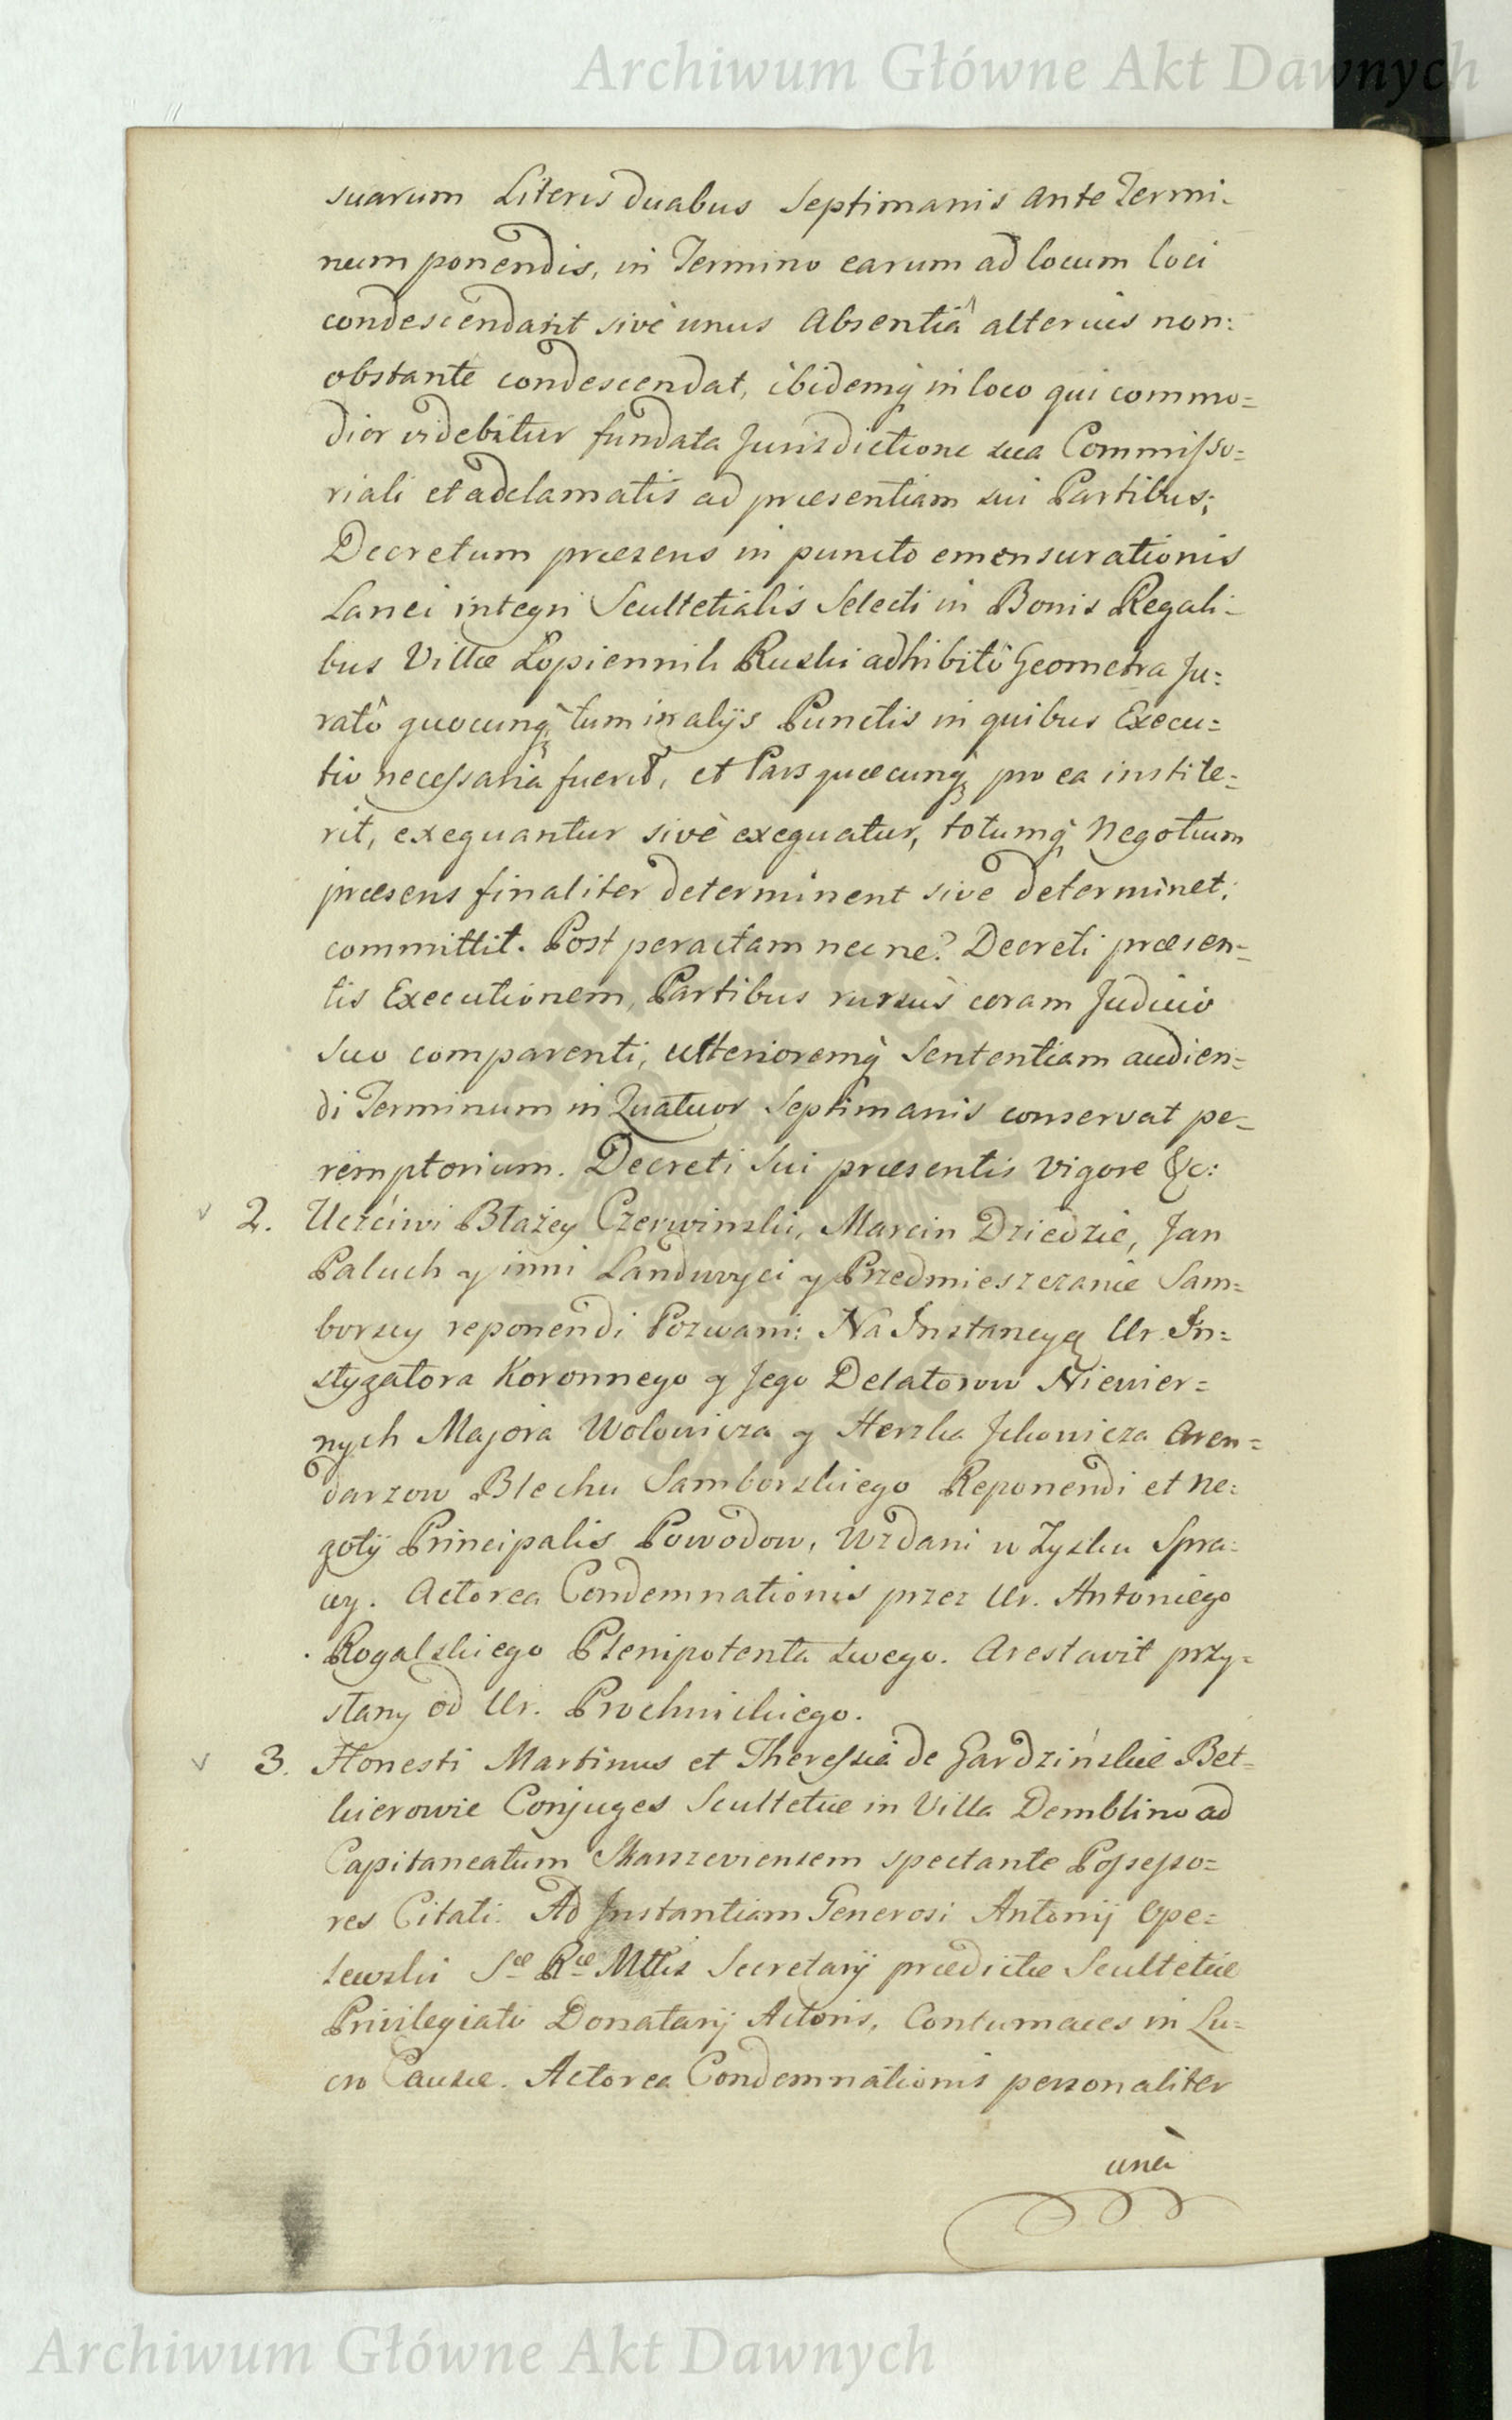 Archiwum Główne Akt Dawnych
suarum Literis duabus Septimanis ante Termi-
num ponendis, in Termino earum ad locum loci
condescendant sivè unus Absentiâ alterius non:
obstante condescendat, ibidemq́ in loco qui commo=
dior videbitur fundata Jurisdictione sua Commisso=
riali et adclamatis ad præsentiam sui Partibus;
Decretum præsens in puncto emensurationis
Lanei integri Scultetialis Selecti in Bonis Regali-
bus Villæ Łopiennik Ruski adhibitô Geometra Ju:
ratô quocunq́ tum in alijs Punctis in quibus Execu=
tio necessaria fuerit, et Pars quæcunq́ pro ea institе=
rit, exequantur sivè exequatur, totumq́ Negotium
præsens finaliter determinent sive determinet;
committit. Post peractam nec ne? Decreti præsen=
tis Executionem, Partibus rursus coram Judicio
suo comparenti, ulterioremq́ Sententiam audien=
di Terminum in Quatuor Septimanis conservat pe=
remptorium. Decreti sui præsentis vigore &c:
2. Uczciwi Błażey Czerwinski, Marcin Dziedzic, Jan
Paluch y inni Landwyci y Przedmieszczanie Sam=
borscy reponendi Pozwani: Na Instancyą Ur. In=
stygatora Koronnego y Jego Delatorow Niewier=
nych Majora Wolowicza y Herszka Jckowicza Aren=
darzow Blechu Samborskiego Reponendi et Ne:
gotij Principalis Powodow, Wzdani w Zysku Spra=
wy. Actorea Condemnationis przez Ur. Antoniego
Rogalskiego Plenipotenta swego. Arestavit przy=
stany od Ur. Prochnickiego.
3. Honesti Martinus et Theressia de Gardzińskie Bet=
kierowie Conjuges Scultetiæ in Villa Demblino ad
Capitaneatum Skarszeviensem spectante Possesso=
res Citati. Ad Instantiam Generosi Antonij Ope=
lewski Sæ Ræ Mttis Secretarij prædictæ Scultetiæ
Privilegiati Donatarij Actoris, Contumaces in Lu=
cro Causæ. Actorea Condemnationis personaliter
unà
Archiwum Główne Akt Dawnych